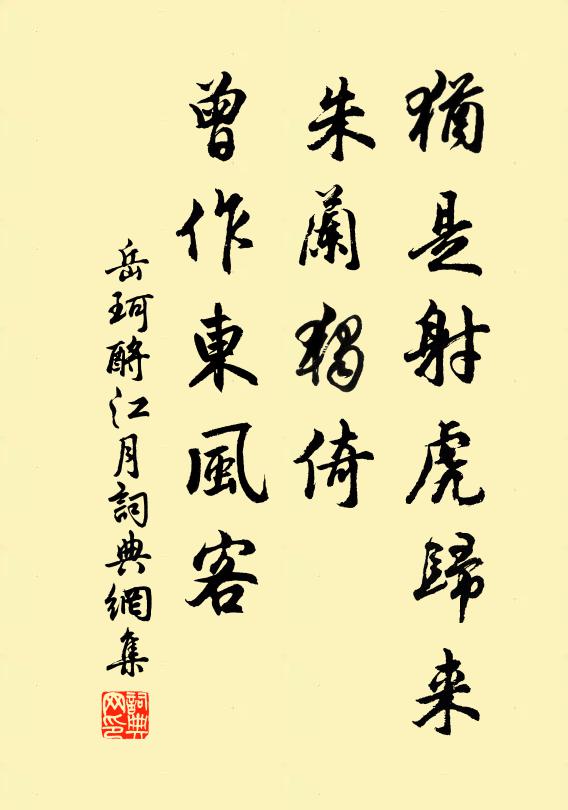 猶是射虎歸来
朱蘭獨倚
曾作東風客
岳珂酹江月詞典網集
詞典网印